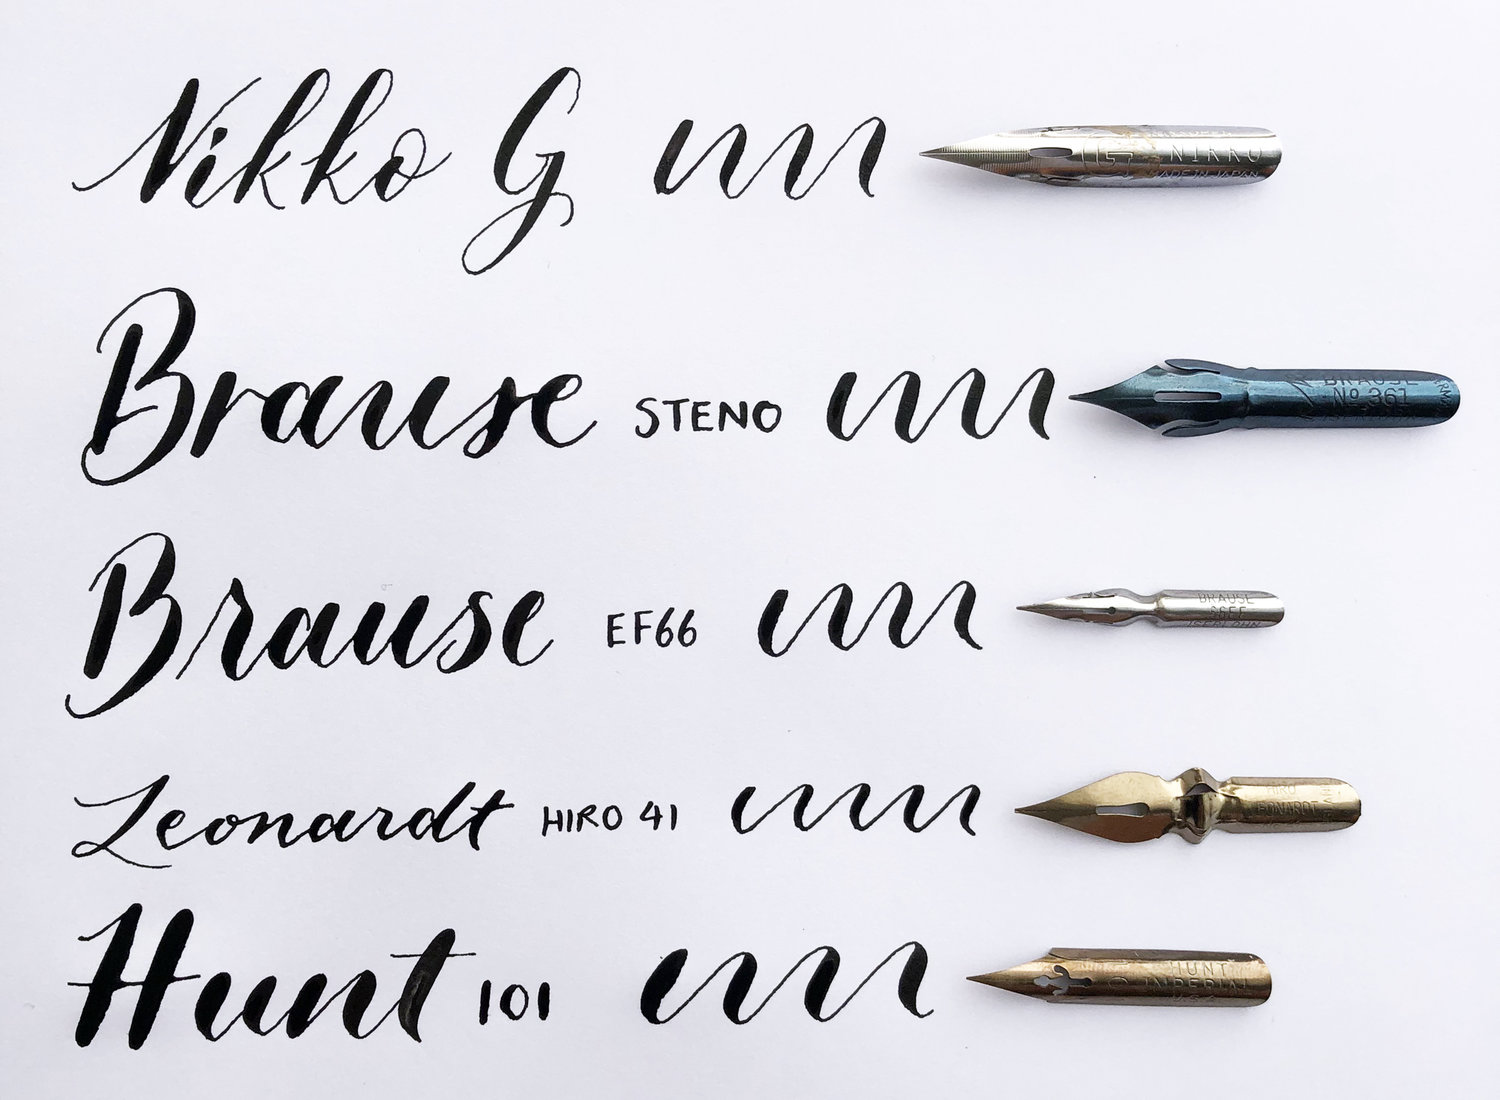 Nikko G NIKKO MADE IN JAPAN
Brause STENO BRAUSE No 361
Brause EF66 BRAUSE 66EF
Leonardt HIRO 41 HIRO LEONARDT
Hunt 101 HUNT IMPERIAL USA